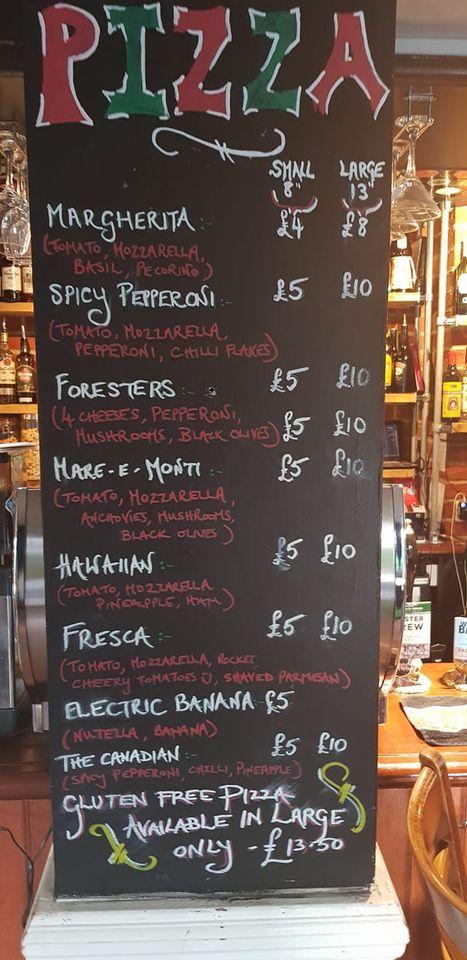 PIZZA
SMALL LARGE
8" 13"
MARGHERITA :- £4 £8
(TOMATO, MOZZARELLA,
BASIL, PECORINO)
SPICY PEPPERONI :- £5 £10
(TOMATO, MOZZARELLA,
PEPPERONI, CHILLI FLAKES)
FORESTERS :- £5 £10
(4 CHEESES, PEPPERONI,
MUSHROOMS, BLACK OLIVES) £5 £10
MARE-E-MONTI :- £5 £10
(TOMATO, MOZZARELLA,
ANCHOVIES, MUSHROOMS,
BLACK OLIVES)
HAWAIIAN :- £5 £10
(TOMATO, MOZZARELLA
PINEAPPLE, HAM)
FRESCA :- £5 £10
(TOMATO, MOZZARELLA, ROCKET,
CHEERY TOMATOES, SHAVED PARMESAN)
ELECTRIC BANANA £5
(NUTELLA, BANANA)
THE CANADIAN :- £5 £10
(SPICY PEPPERONI, CHILLI, PINEAPPLE)
GLUTEN FREE PIZZA
AVAILABLE IN LARGE
ONLY - £13.50